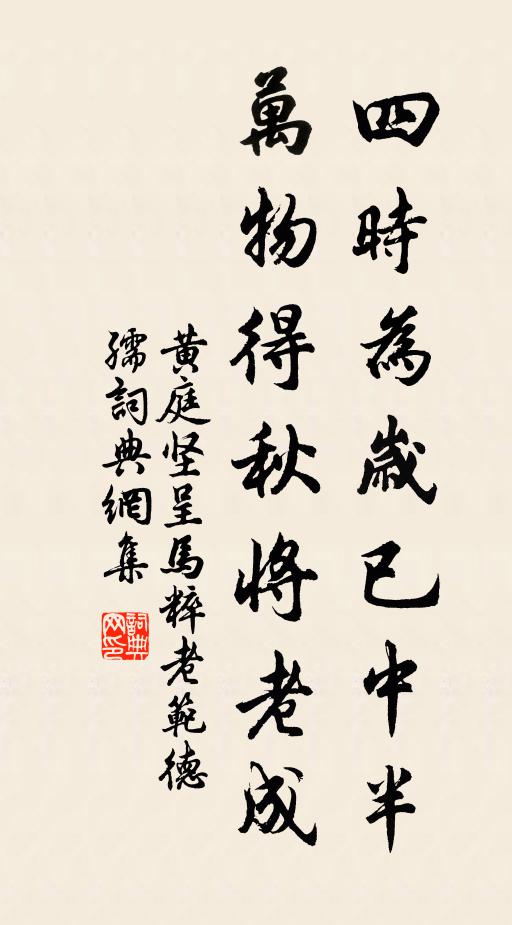 四時為歲已中半
萬物得秋將老成
黄庭坚呈馬粹老範德
孺詞典網集
詞典
网印